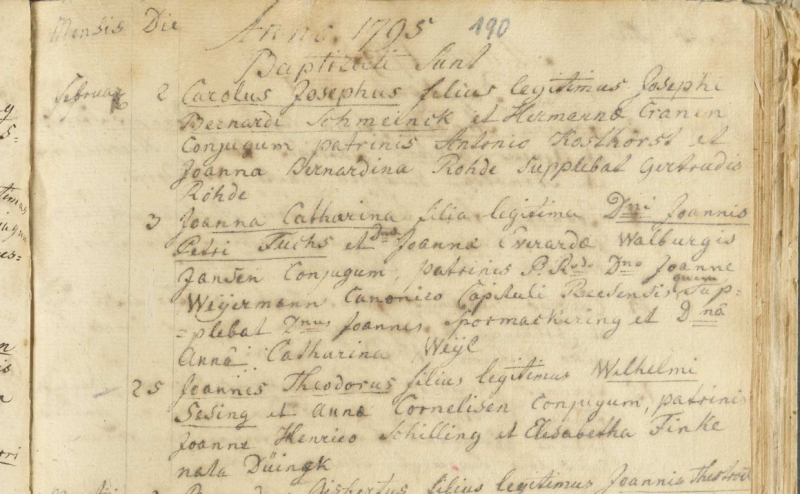 Mensis Die Anno 1795 190
Baptizati Sunt
Februar 2 Carolus Josephus filius legitimus Josephi
Bernardi Schmeinck et Hermanna Cranen
Conjugum patrinis Antonio Kosthorst et
Joanna Bernardina Rohde supplebat Gertrudis
Rohde
3 Joanna Catharina filia legitima Dni Joannis
Petri Fuchs et Dnæ Joanna Everarda Walburgis
Jansen Conjugum, patrinis P. Rdo Dno Joanne
Weijermann Canonico Capituli Reesensis, quem Sup=
=plebat Dnus Joannes Spormackering et Dnâ
Annâ Catharina Weijl
25 Joannes Theodorus filius legitimus Wilhelmi
Sesing et Anna Cornelisen Conjugum, patrinis
Joanne Henrico Schilling et Elisabetha Finke
nata Düingk
Gisbertus filius legitimus Joannis